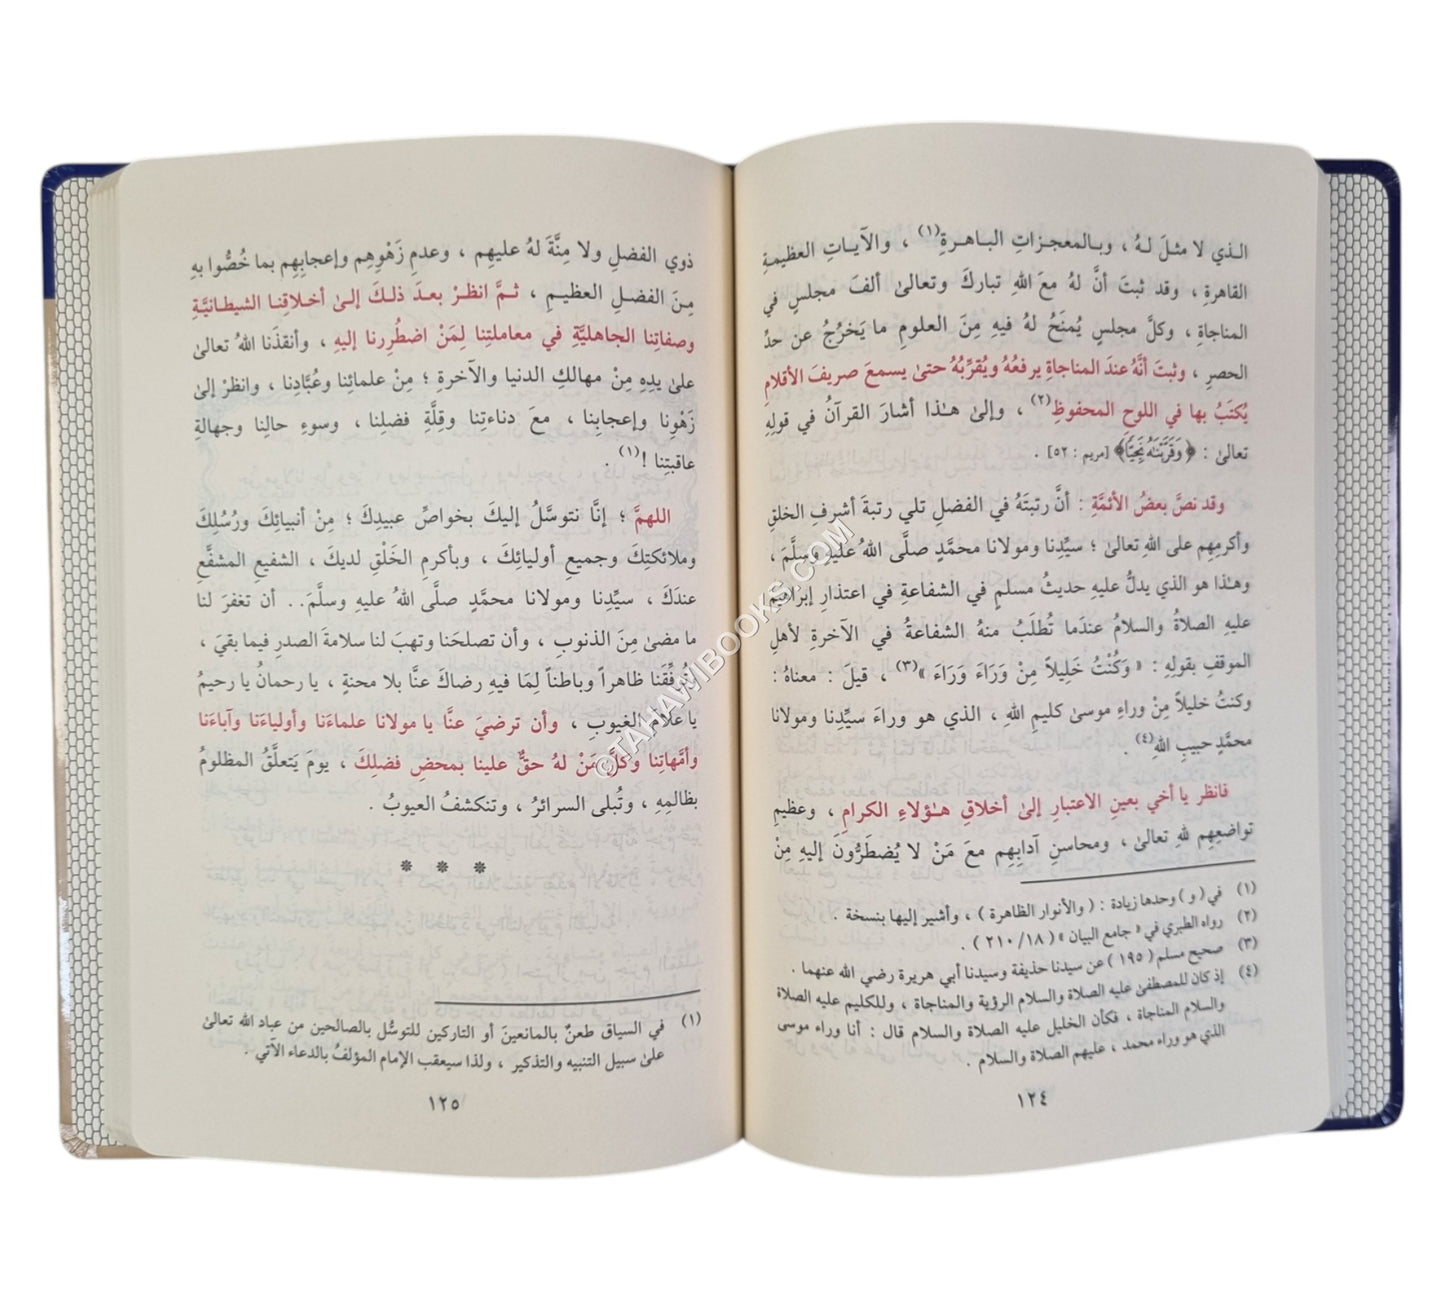 الـذي لا مثلَ لـهُ ، وبـالمعجـزاتِ البـاهـرةِ(١) ، والآيـاتِ العظيمـةِ
القاهرةِ ، وقد ثبتَ أنَّ لهُ معَ اللهِ تباركَ وتعالىٰ ألفَ مجلسٍ في
المناجاةِ ، وكلَّ مجلسٍ يُمنَحُ لهُ فيهِ مِنَ العلومِ ما يَخرُجُ عن حدِّ
الحصرِ ، وثبتَ أنَّهُ عندَ المناجاةِ يرفعُهُ ويُقرِّبُهُ حتىٰ يسمعَ صريفَ الأقلامِ
يُكتَبُ بها في اللوحِ المحفوظِ(٢) ، وإلىٰ هـٰذا أشارَ القرآنُ في قولِهِ
تعالىٰ : ﴿وَقَرَّبْنَـٰهُ نَجِيًّا﴾ [مريم : ٥٢] .
وقد نصَّ بعضُ الأئمَّةِ : أنَّ رتبتَهُ في الفضلِ تلي رتبةَ أشرفِ الخلقِ
وأكرمِهِم على اللهِ تعالىٰ ؛ سيِّدِنا ومولانا محمَّدٍ صلَّى اللهُ عليهِ وسلَّمَ ،
وهـٰذا هو الذي يدلُّ عليهِ حديثُ مسلمٍ في الشفاعةِ في اعتذارِ إبراهيمَ
عليهِ الصلاةُ والسلامُ عندَما تُطلَبُ منهُ الشفاعةُ في الآخرةِ لأهلِ
الموقفِ بقولِهِ : « وَكُنْتُ خَلِيلاً مِنْ وَرَاءَ وَرَاءَ »(٣) ، قيلَ : معناهُ :
وكنتُ خليلاً مِنْ وراءِ موسىٰ كليمِ اللهِ ، الذي هو وراءَ سيِّدِنا ومولانا
محمَّدٍ حبيبِ اللهِ(٤) .
فانظر يا أخي بعينِ الاعتبارِ إلىٰ أخلاقِ هـٰؤلاءِ الكرامِ ، وعظيمِ
تواضعِهِم للهِ تعالىٰ ، ومحاسنِ آدابِهِم معَ مَنْ لا يُضطَرُّونَ إليهِ مِنْ
(١) في ( و ) وحدها زيادة : ( والأنوار الظاهرة ) ، وأشير إليها بنسخة .
(٢) رواه الطبري في « جامع البيان » ( ١٨/ ٢١٠ ) .
(٣) صحيح مسلم ( ١٩٥ ) عن سيدنا حذيفة وسيدنا أبي هريرة رضي الله عنهما .
(٤) إذ كان للمصطفىٰ عليه الصلاة والسلام الرؤية والمناجاة ، وللكليم عليه الصلاة
والسلام المناجاة ، فكأن الخليل عليه الصلاة والسلام قال : أنا وراء موسىٰ
الذي هو وراء محمد ، عليهم الصلاة والسلام .
١٢٤
ذوي الفضلِ ولا مِنَّةَ لهُ عليهِم ، وعدمِ زَهْوِهِم وإعجابِهِم بما خُصُّوا بهِ
مِنَ الفضلِ العظيـمِ ، ثـمَّ انظرْ بعـدَ ذلـكَ إلىٰ أخـلاقِنـا الشيطـانيَّـةِ
وصفاتِنا الجاهليَّةِ في معاملتِنا لِمَنْ اضطُرِرنا إليهِ ، وأنقذَنا اللهُ تعالىٰ
علىٰ يدِهِ مِنْ مهالكِ الدنيا والآخرةِ ؛ مِنْ علمائِنا وعُبَّادِنا ، وانظرْ إلىٰ
زَهْوِنا وإعجابِنا ، معَ دناءتِنا وقِلَّةِ فضلِنا ، وسوءِ حالِنا وجهالةِ
عاقبتِنا !(١) .
اللهمَّ ؛ إنَّا نتوسَّلُ إليكَ بخواصِّ عبيدِكَ ؛ مِنْ أنبيائِكَ ورُسُلِكَ
وملائكتِكَ وجميعِ أوليائِكَ ، وبأكرمِ الخَلْقِ لديكَ ، الشفيعِ المشفَّعِ
عندَكَ ، سيِّدِنا ومولانا محمَّدٍ صلَّى اللهُ عليهِ وسلَّمَ.. أن تغفرَ لنا
ما مضىٰ مِنَ الذنوبِ ، وأن تصلحَنا وتهبَ لنا سلامةَ الصدرِ فيما بقيَ ،
وتُوفِّقَنا ظاهراً وباطناً لِمَا فيهِ رضاكَ عنَّا بلا محنةٍ ، يا رحمانُ يا رحيمُ
يا علَّامَ الغيوبِ ، وأن ترضيَ عنَّا يا مولانا علماءَنا وأولياءَنا وآباءَنا
وأمَّهاتِنا وكلَّ مَنْ لهُ حقٌّ علينا بمحضِ فضلِكَ ، يومَ يَتعلَّقُ المظلومُ
بظالمِهِ ، وتُبلى السرائرُ ، وتنكشفُ العيوبُ .
* * *
(١) في السياق طعنٌ بالمانعينَ أو التاركين للتوسُّل بالصالحين من عباد الله تعالىٰ
علىٰ سبيل التنبيه والتذكير ، ولذا سيعقب الإمام المؤلفُ بالدعاء الآتي .
١٢٥
© TAHAWIBOOKS.COM